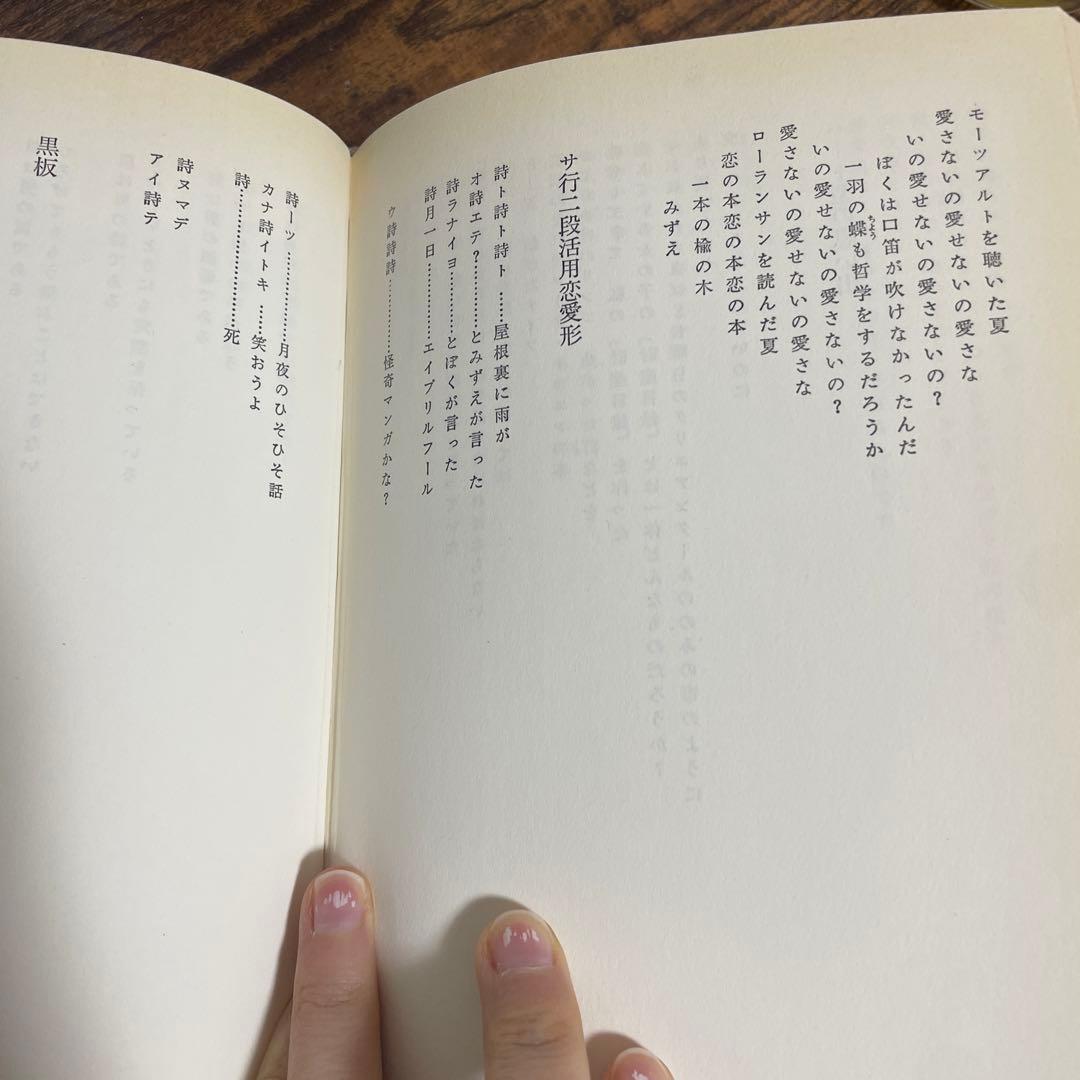 モーツアルトを聴いた夏
愛さないの愛せないの愛さな
いの愛せないの愛さないの？
ぼくは口笛が吹けなかったんだ
一羽の蝶も哲学をするだろうか
ちよう
いの愛せないの愛さないの？
愛さないの愛せないの愛さな
ローランサンを読んだ夏
恋の本恋の本恋の本
一本の楡の木
みずえ
サ行二段活用恋愛形
詩ト詩ト詩ト……屋根裏に雨が
オ詩エテ？…………とみずえが言った
詩ラナイヨ…………とぼくが言った
詩月一日…………エイプリルフール
ウ詩詩詩…………怪奇マンガかな？
詩ーッ………………月夜のひそひそ話
カナ詩イトキ……笑おうよ
詩…………………………死
詩ヌマデ
アイ詩テ
黒板